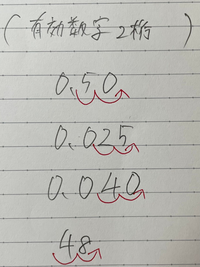 (有効数字2桁)
0.50
0.025
0.040
48